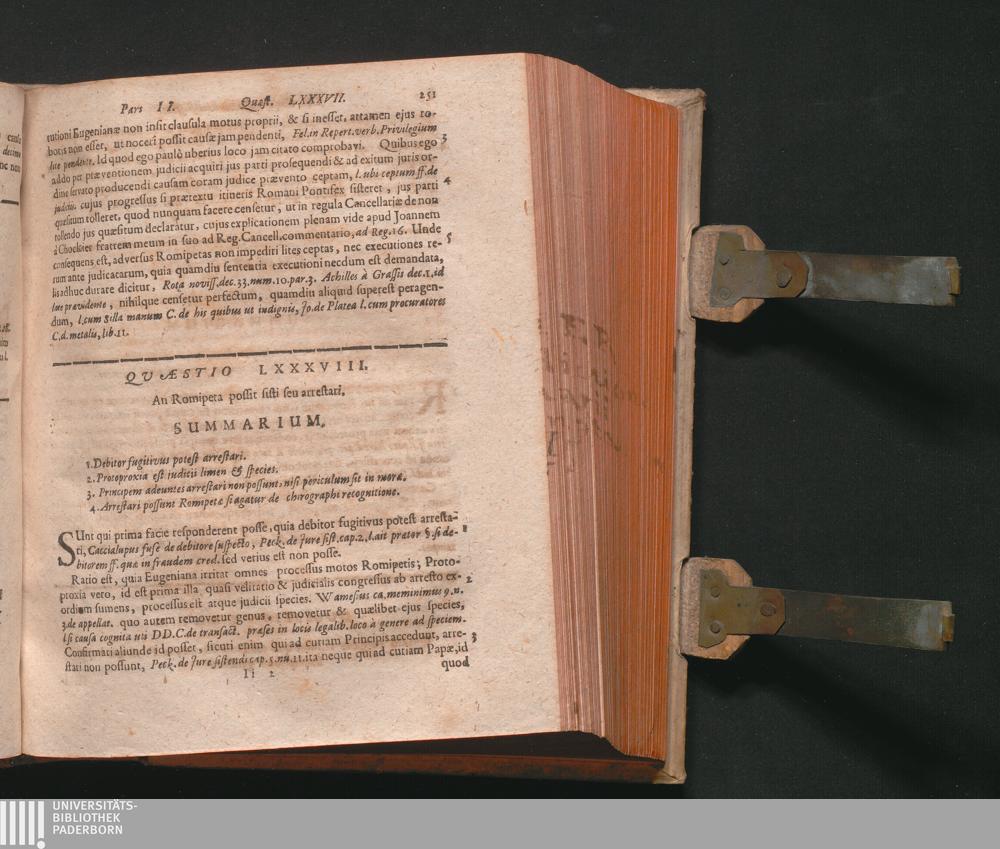 Pars II. Quæst. LXXXVII. 251
tutioni Eugenianæ non insit clausula motus proprii, & si inesset, attamen ejus ro-
boris non esset, ut noceri possit causæ jam pendenti, Fel. in Repert. verb. Privilegium
lite pendente. Id quod ego paulò uberius loco jam citato comprobavi. Quibus ego 3
addo per præventionem judicii acquiri jus parti prosequendi & ad exitum juris or-
dine servato producendi causam coram judice prævento ceptam, l. ubi ceptum ff. de
judiciis. cujus progressus si prætextu itineris Romani Pontifex sisteret, jus parti 4
quæsitum tolleret, quod nunquam facere censetur, ut in regula Cancellariæ de non
tollendo jus quæsitum declaratur, cujus explicationem plenam vide apud Joannem
à Chockier fratrem meum in suo ad Reg. Cancell. commentario, ad Reg. 16. Unde
consequens est, adversus Romipetas non impediri lites ceptas, nec executiones re- 5
rum ante judicatarum, quia quamdiu sententia executioni necdum est demandata,
lis adhuc durare dicitur, Rota noviss. dec. 33. num. 10. par. 3. Achilles à Grassis dec. 1. id
lite prævidente, nihilque censetur perfectum, quamdiu aliquid superest peragen-
dum, l. cum Silla manum C. de his quibus ut indignis, Jo. de Platea l. cum procuratores
C. d. metalis, lib. 11.
QVÆSTIO LXXXVIII.
An Romipeta possit sisti seu arrestari.
SUMMARIUM.
1. Debitor fugitivus potest arrestari.
2. Protoproxia est iudicii limen & species.
3. Principem adeuntes arrestari non possunt, nisi periculum sit in mora.
4. Arrestari possunt Romipetæ si agatur de chirographi recognitione.
SUnt qui prima facie responderent posse, quia debitor fugitivus potest arresta- 1
ti, Caccialupus fuse de debitore suspecto, Peck. de Jure sist. cap. 2. l. ait prætor §. si de-
bitorem ff. quæ in fraudem cred. sed verius est non posse.
Ratio est, quia Eugeniana irritat omnes processus motos Romipetis; Proto-
proxia vero, id est prima illa quasi velitatio & judicialis congressus ab arresto ex- 2
ordium sumens, processus est atque judicii species. Wamesius ca. meminimus 9. n.
3. de appellat. quo autem removetur genus, removetur & quælibet ejus species,
l. si causa cognita uti DD. C. de transact. præses in locis legalib. loco à genere ad speciem.
Confirmati aliunde id posset, sicuti enim qui ad curiam Principis accedunt, arre- 3
stati non possunt, Peck. de Jure sistendi cap. 5. nu. 11. ita neque qui ad curiam Papæ, id
Ii 2 quod
UNIVERSITÄTS-
BIBLIOTHEK
PADERBORN